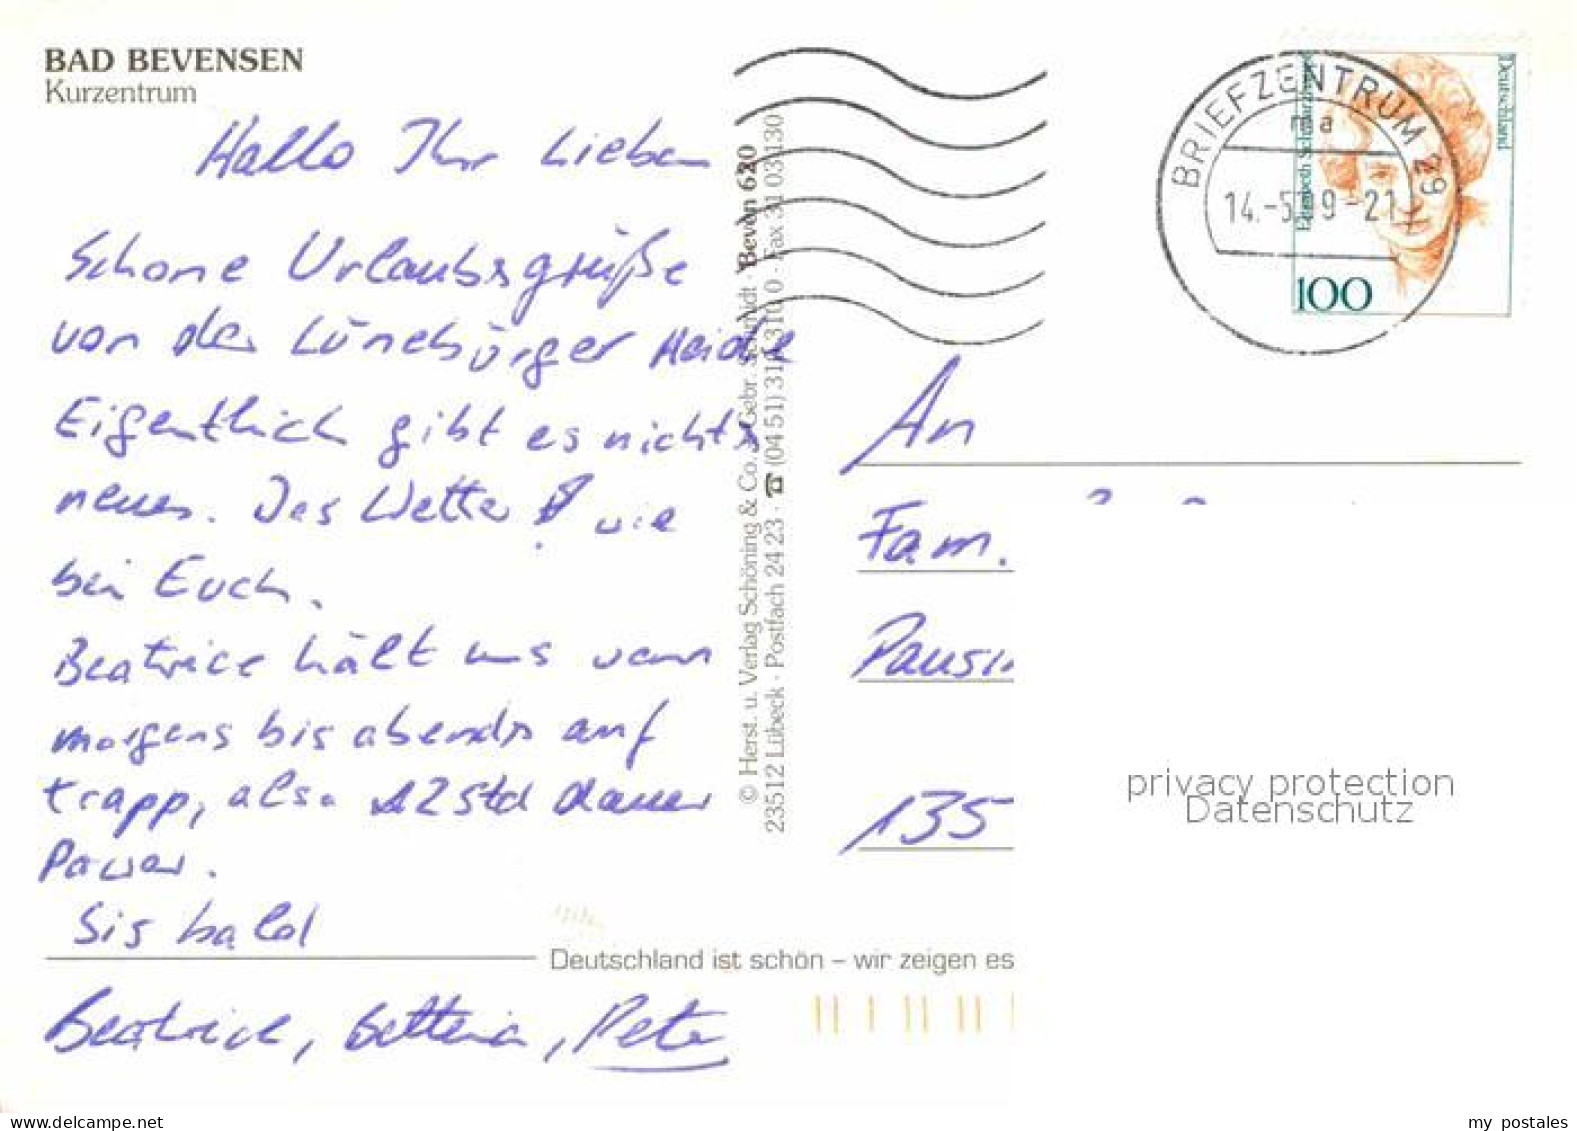 BAD BEVENSEN
Kurzentrum
Hallo Ihr Lieben
Schöne Urlaubsgrüße
von der Lüneburger Heide
Eigentlich gibt es nichts
neues. Das Wetter wie
bei Euch.
Beatrice hält uns von
morgens bis abends auf
trapp, also 12 Std dauer
Power.
Bis bald
Beatrice, Bettina, Peter
© Herst. u. Verlag Schöning & Co. + Gebr. Schmidt Beven 620
23512 Lübeck · Postfach 24 23 · ☎ (04 51) 3 10 310 0 · Fax 31 03 130
Deutschland ist schön – wir zeigen es
BRIEFZENTRUM 29
ma
14.-5.99-21
Deutschland
Elisabeth Schwarzhaupt
100
An
Fam.
Pausi
135
privacy protection
Datenschutz
my postales